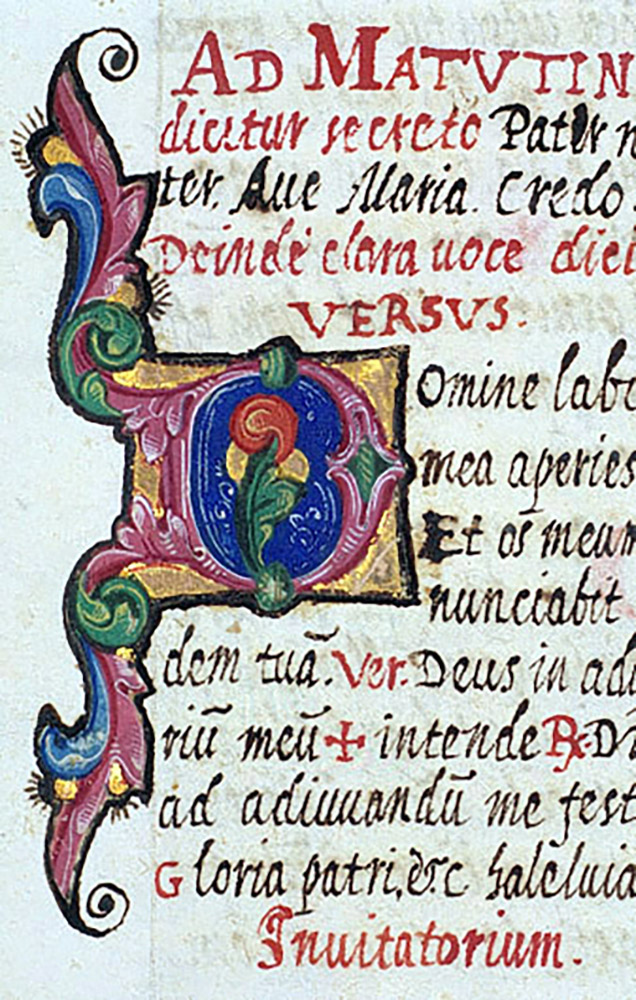 AD MATVTIN
dicitur secreto Pater n
ter. Aue Maria. Credo
Deinde clara uoce dici
VERSVS.
Domine labi
mea aperies
Et os̄ meum
nunciabit
dem tuā. Ver. Deus in adi
riū meū + intende ℞. Dn
ad adiuuandū me fest
Gloria patri, &c haleluia
Inuitatorium.